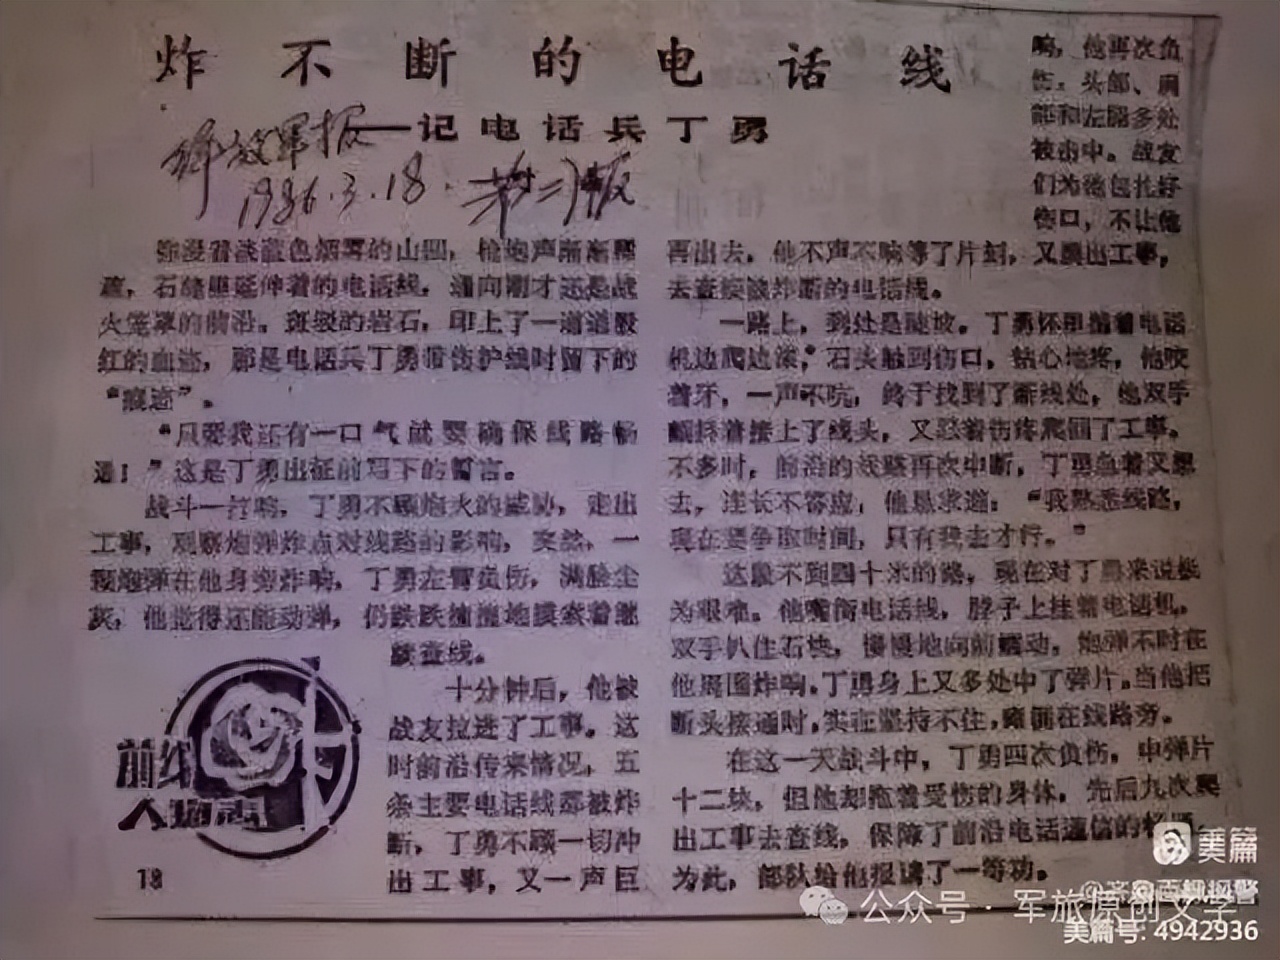 炸不断的电话线
——记电话兵丁勇
解放军报
1986.3.18. 第二版
弥漫着淡蓝色烟雾的山团，枪炮声渐渐稀
疏，石缝里延伸着的电话线，通向刚才还是战
火笼罩的前沿。斑驳的岩石，印上了一道道殷
红的血迹，那是电话兵丁勇带伤护线时留下的
“痕迹”。
“只要我还有一口气就要确保线路畅
通！”这是丁勇出征前写下的誓言。
战斗一打响，丁勇不顾炮火的威胁，走出
工事，观察炮弹炸点对线路的影响，突然，一
发炮弹在他身旁炸响，丁勇左臂负伤，满脸尘
灰，他觉得还能动弹，仍跌跌撞撞地摸索着继
续查线。
十分钟后，他被
战友拉进了工事。这
时前沿传来情况，五
条主要电话线都被炸
断，丁勇不顾一切冲
出工事，又一声巨
响，他再次负
伤：头部、肩
部和左腿多处
被击中。战友
们为他包扎好
伤口，不让他
再出去，他不声不响等了片刻，又爬出工事，
去查接被炸断的电话线。
一路上，到处是陡坡。丁勇怀里揣着电话
机边爬边滚，石头触到伤口，钻心地疼，他咬
着牙，一声不吭，终于找到了断线处，他双手
颤抖着接上了线头，又忍着伤疼爬回了工事。
不多时，前沿的线路再次中断，丁勇急着又想
去，连长不答应，他恳求道：“我熟悉线路，
现在要争取时间，只有我去才行。”
这段不到四十米的路，现在对丁勇来说极
为艰难。他嘴衔电话线，脖子上挂着电话机，
双手扒住石块，慢慢地向前蠕动，炮弹不时在
他周围炸响，丁勇身上又多处中了弹片。当他把
断头接通时，实在坚持不住，瘫倒在线路旁。
在这一天战斗中，丁勇四次负伤，中弹片
十二块，但他却拖着受伤的身体，先后九次爬
出工事去查线，保障了前沿电话通信的畅通。
为此，部队给他报请了一等功。
前线
人物志
18
美篇
公众号 · 军旅原创文学
美篇号: 4942936